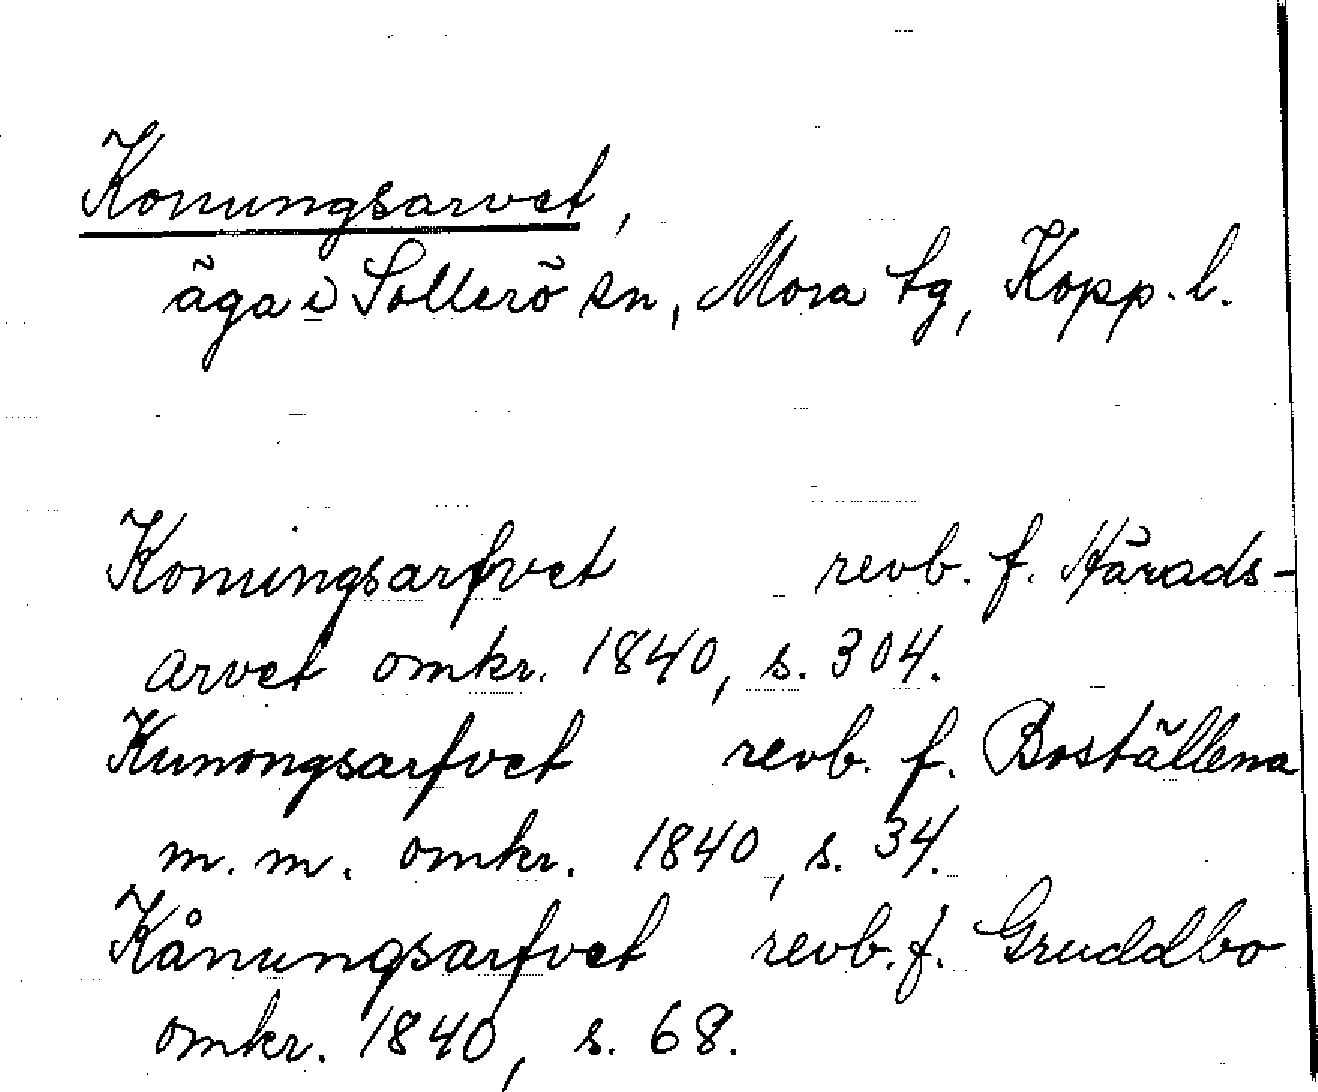 Konungsarvet,
äga i Sollerö sn, Mora tg, Kopp. l.
Konungsarfvet revb. f. Härads-
arvet omkr. 1840, s. 304.
Kunongsarfvet revb. f. Boställena
m. m. omkr. 1840, s. 34.
Kånungsarfvet revb. f. Gruddbo
omkr. 1840, s. 68.